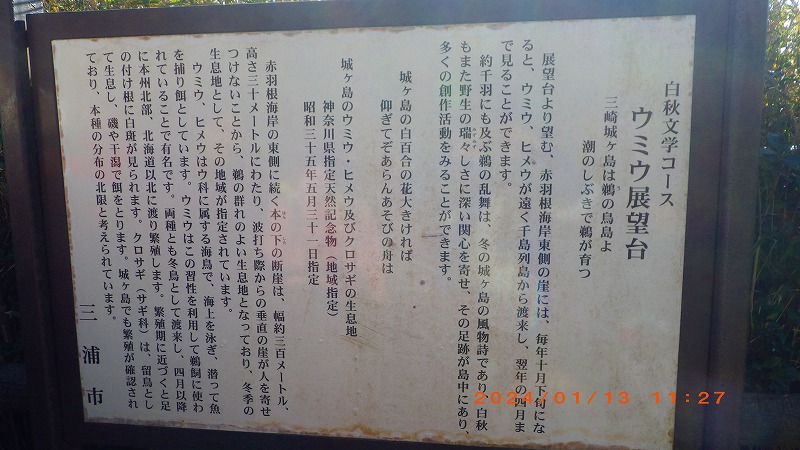 白秋文学コース
ウミウ展望台
三崎城ヶ島は鵜の鳥島よ
潮のしぶきで鵜が育つ
展望台より望む、赤羽根海岸東側の崖には、毎年十月下旬にな
ると、ウミウ、ヒメウが遠く千島列島から渡来し、翌年の四月ま
で見ることができます。
約千羽にも及ぶ鵜の乱舞は、冬の城ヶ島の風物詩であり、白秋
もまた野生の瑞々しさに深い関心を寄せ、その足跡が島中にあり、
多くの創作活動をみることができます。
城ヶ島の白百合の花大きければ
仰ぎてぞあらんあそびの舟は
城ヶ島のウミウ・ヒメウ及びクロサギの生息地
神奈川県指定天然記念物（地域指定）
昭和三十五年五月三十一日指定
赤羽根海岸の東側に続く本の下の断崖は、幅約三百メートル、
高さ三十メートルにわたり、波打ち際からの垂直の崖が人を寄せ
つけないことから、鵜の群れのよい生息地となっており、冬季の
生息地として、その地域が指定されています。
ウミウ、ヒメウはウ科に属する海鳥で、海上を泳ぎ、潜って魚
を捕り餌としています。ウミウはこの習性を利用して鵜飼に使わ
れていることで有名です。両種とも冬鳥として渡来し、四月以降
に本州北部、北海道以北に渡り繁殖します。繁殖期に近づくと足
の付け根に白斑が見られます。クロサギ（サギ科）は、留鳥とし
て生息し、磯や干潟で餌をとります。城ヶ島でも繁殖が確認され
ており、本種の分布の北限と考えられています。
三浦市
2024/01/13 11:27